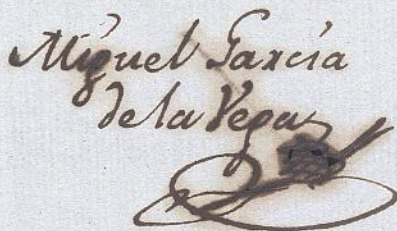 Miguel Garcia
de la Vega